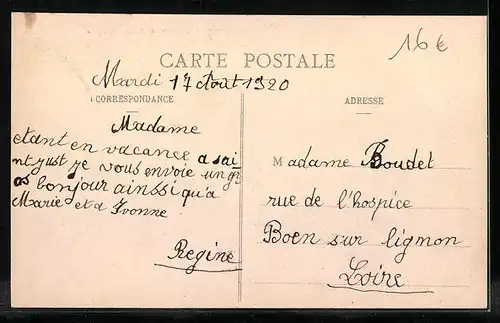 16€
CARTE POSTALE
Mardi 17 Août 1920
CORRESPONDANCE
ADRESSE
Madame
etant en vacance a sai
nt just je vous envoie un gr
os bonjour ainssi qu'a
Marie et a Ivonne
Regine
Madame Boudet
rue de l'hospice
Boen sur lignon
Loire